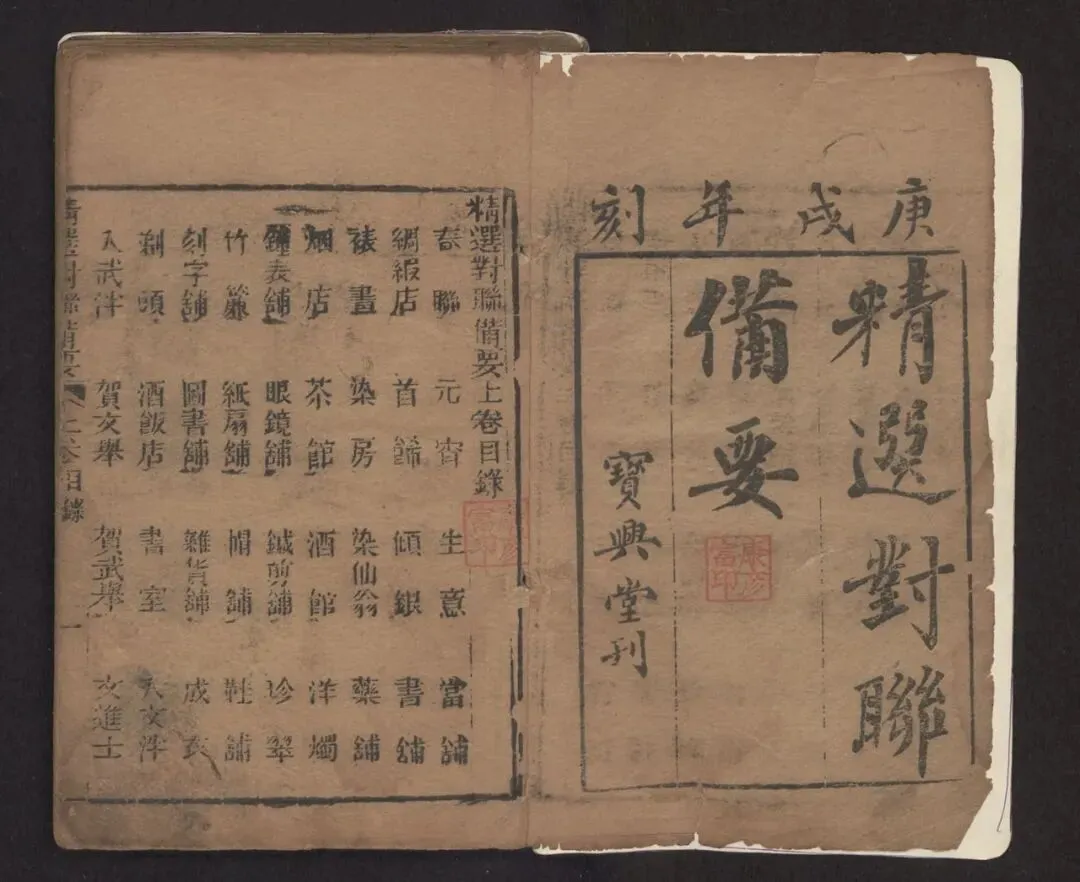 庚戌年刻
精選對聯
備要
寶興堂刊
康彥
富印
精選對聯備要上卷目錄
春聯 元宵 生意 當舖
綢緞店 首飾 傾銀 書舖
裱畫 染房 染仙翁 藥舖
烟店 茶館 酒館 洋燭
鐘表舖 眼鏡舖 鍼剪舖 珍翠
竹簾 紙扇舖 帽舖 鞋舖
刻字舖 圖書舖 雜貨舖 成衣
剃頭 酒飯店 書室 入文泮
入武泮 賀文舉 賀武舉 文進士
精選對聯備要 上卷目錄 一